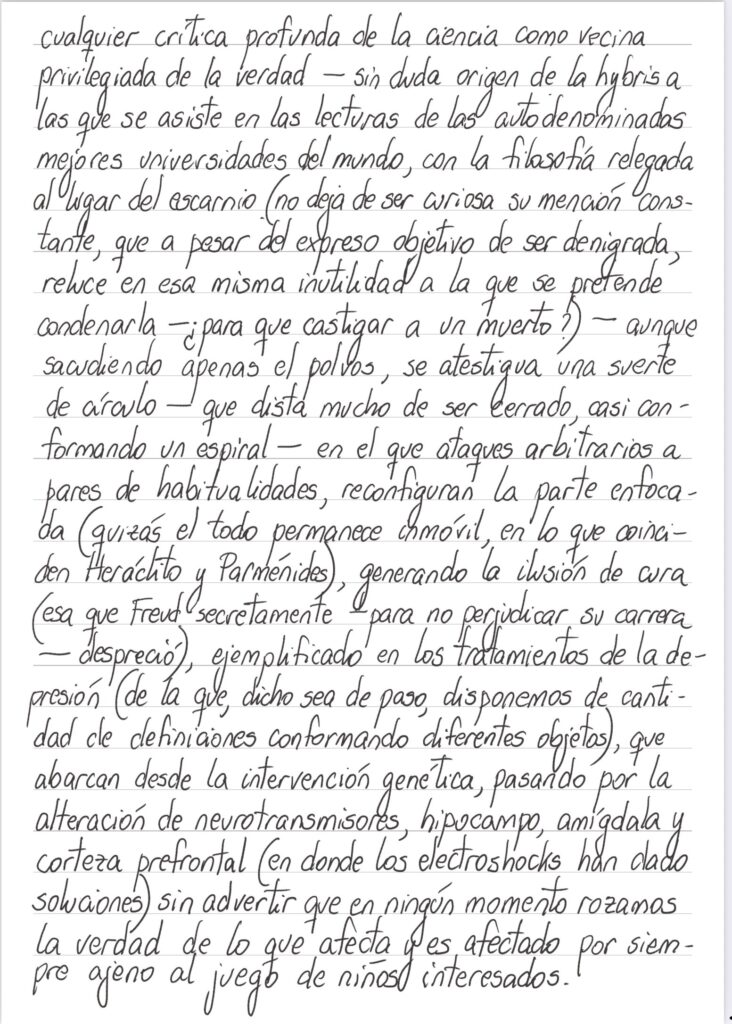 cualquier crítica profunda de la ciencia como vecina
privilegiada de la verdad — sin duda origen de la hybris a
las que se asiste en las lecturas de las autodenominadas
mejores universidades del mundo, con la filosofía relegada
al lugar del escarnio (no deja de ser curiosa su mención cons-
tante, que a pesar del expreso objetivo de ser denigrada,
reluce en esa misma inutilidad a la que se pretende
condenarla — ¿para que castigar a un muerto?) — aunque
sacudiendo apenas el polvos, se atestigua una suerte
de círculo — que dista mucho de ser cerrado, casi con-
formando un espiral — en el que ataques arbitrarios a
pares de habitualidades, reconfiguran la parte enfoca-
da (quizás el todo permanece inmóvil, en lo que coinci-
den Heráclito y Parménides), generando la ilusión de cura
(esa que Freud secretamente — para no perjudicar su carrera
— despreció), ejemplificado en los tratamientos de la de-
presión (de la que, dicho sea de paso, disponemos de canti-
dad de definiciones conformando diferentes objetos), que
abarcan desde la intervención genética, pasando por la
alteración de neurotransmisores, hipocampo, amígdala y
corteza prefrontal (en donde los electroshocks han dado
soluciones) sin advertir que en ningún momento rozamos
la verdad de lo que afecta y es afectado por siem-
pre ajeno al juego de niños interesados.